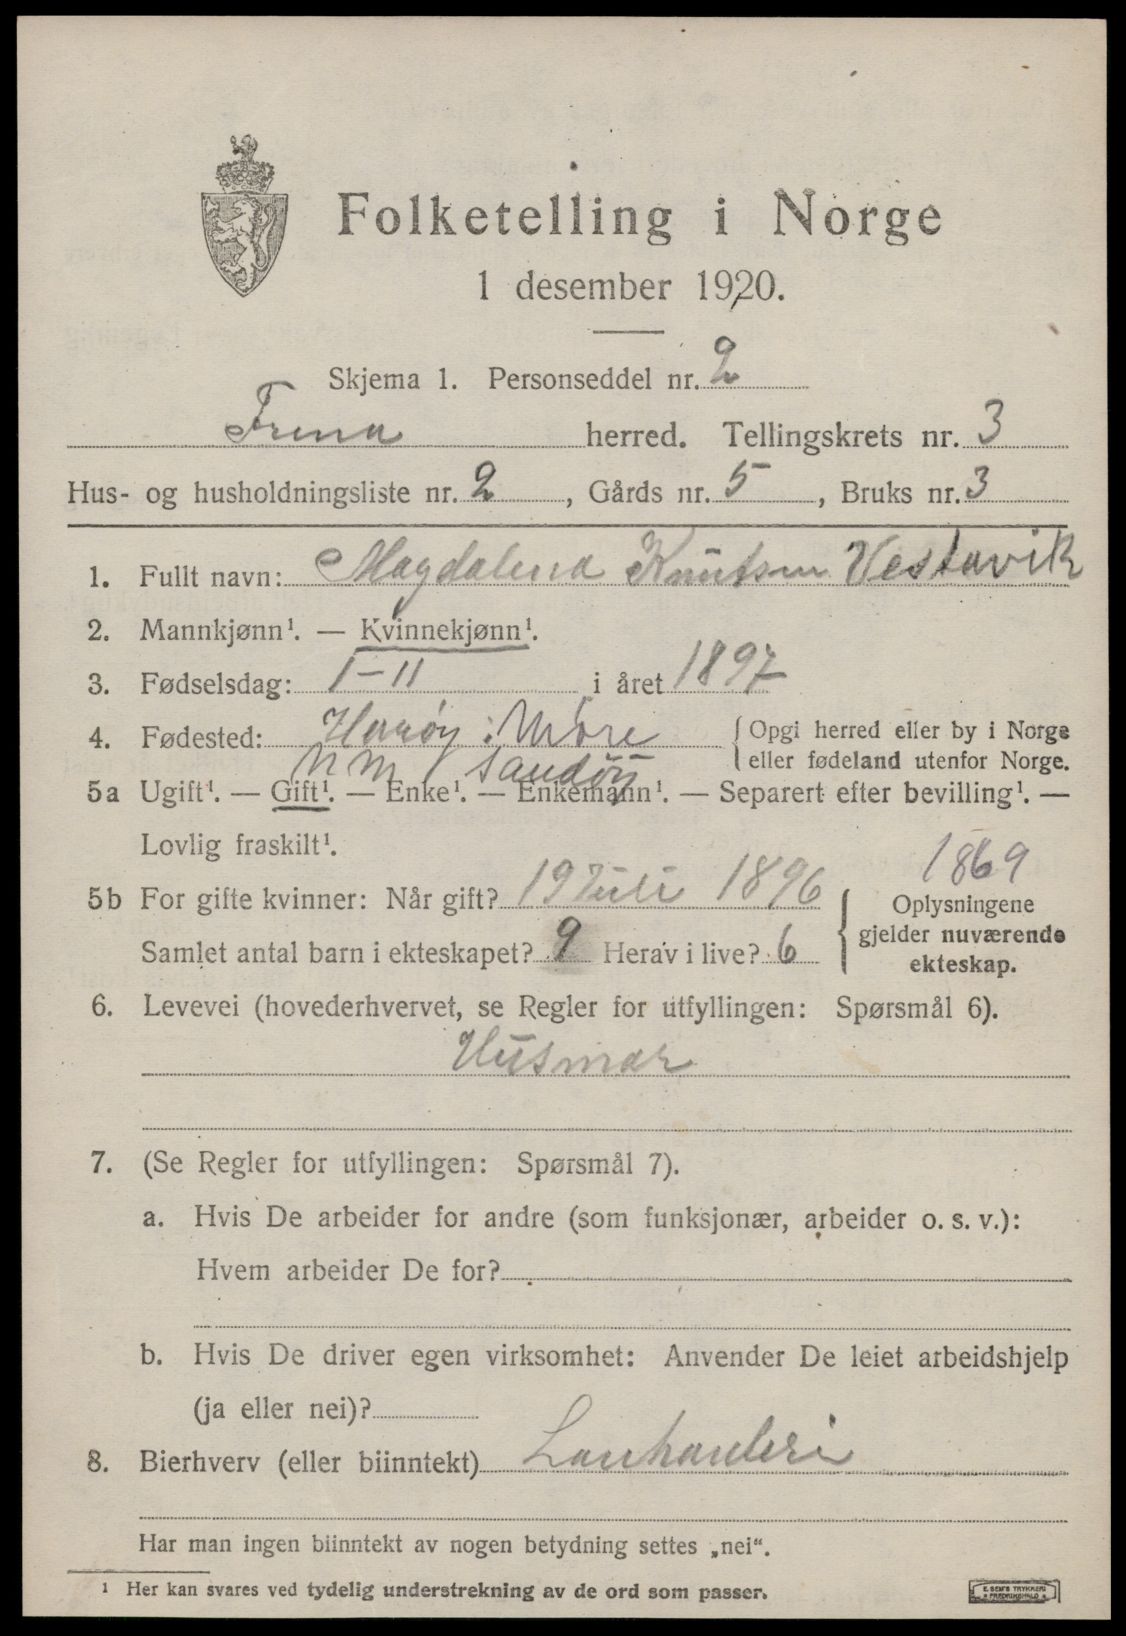 Folketelling i Norge
1 desember 1920.
Skjema 1. Personseddel nr. 2
Fræna herred. Tellingskrets nr. 3
Hus- og husholdningsliste nr. 2, Gårds nr. 5, Bruks nr. 3
1. Fullt navn: Magdalena Knutsen Vestavik
2. Mannkjønn¹. — Kvinnekjønn¹.
3. Fødselsdag: 1-11 i året 1897
4. Fødested: Harøy i Møre { Opgi herred eller by i Norge
eller fødeland utenfor Norge.
NM Sandøy
5a Ugift¹. — Gift¹. — Enke¹. — Enkemann¹. — Separert efter bevilling¹. —
Lovlig fraskilt¹.
1869
5b For gifte kvinner: Når gift? 19 Juli 1896 { Oplysningene
gjelder nuværende
Samlet antal barn i ekteskapet? 9 Herav i live? 6
ekteskap.
6. Levevei (hovederhvervet, se Regler for utfyllingen: Spørsmål 6).
Husmor
7. (Se Regler for utfyllingen: Spørsmål 7).
a. Hvis De arbeider for andre (som funksjonær, arbeider o. s. v.):
Hvem arbeider De for?
b. Hvis De driver egen virksomhet: Anvender De leiet arbeidshjelp
(ja eller nei)?
8. Bierhverv (eller biinntekt)
Har man ingen biinntekt av nogen betydning settes „nei".
¹ Her kan svares ved tydelig understrekning av de ord som passer.
E. SEM'S TRYKKERI
FREDRIKSHALD